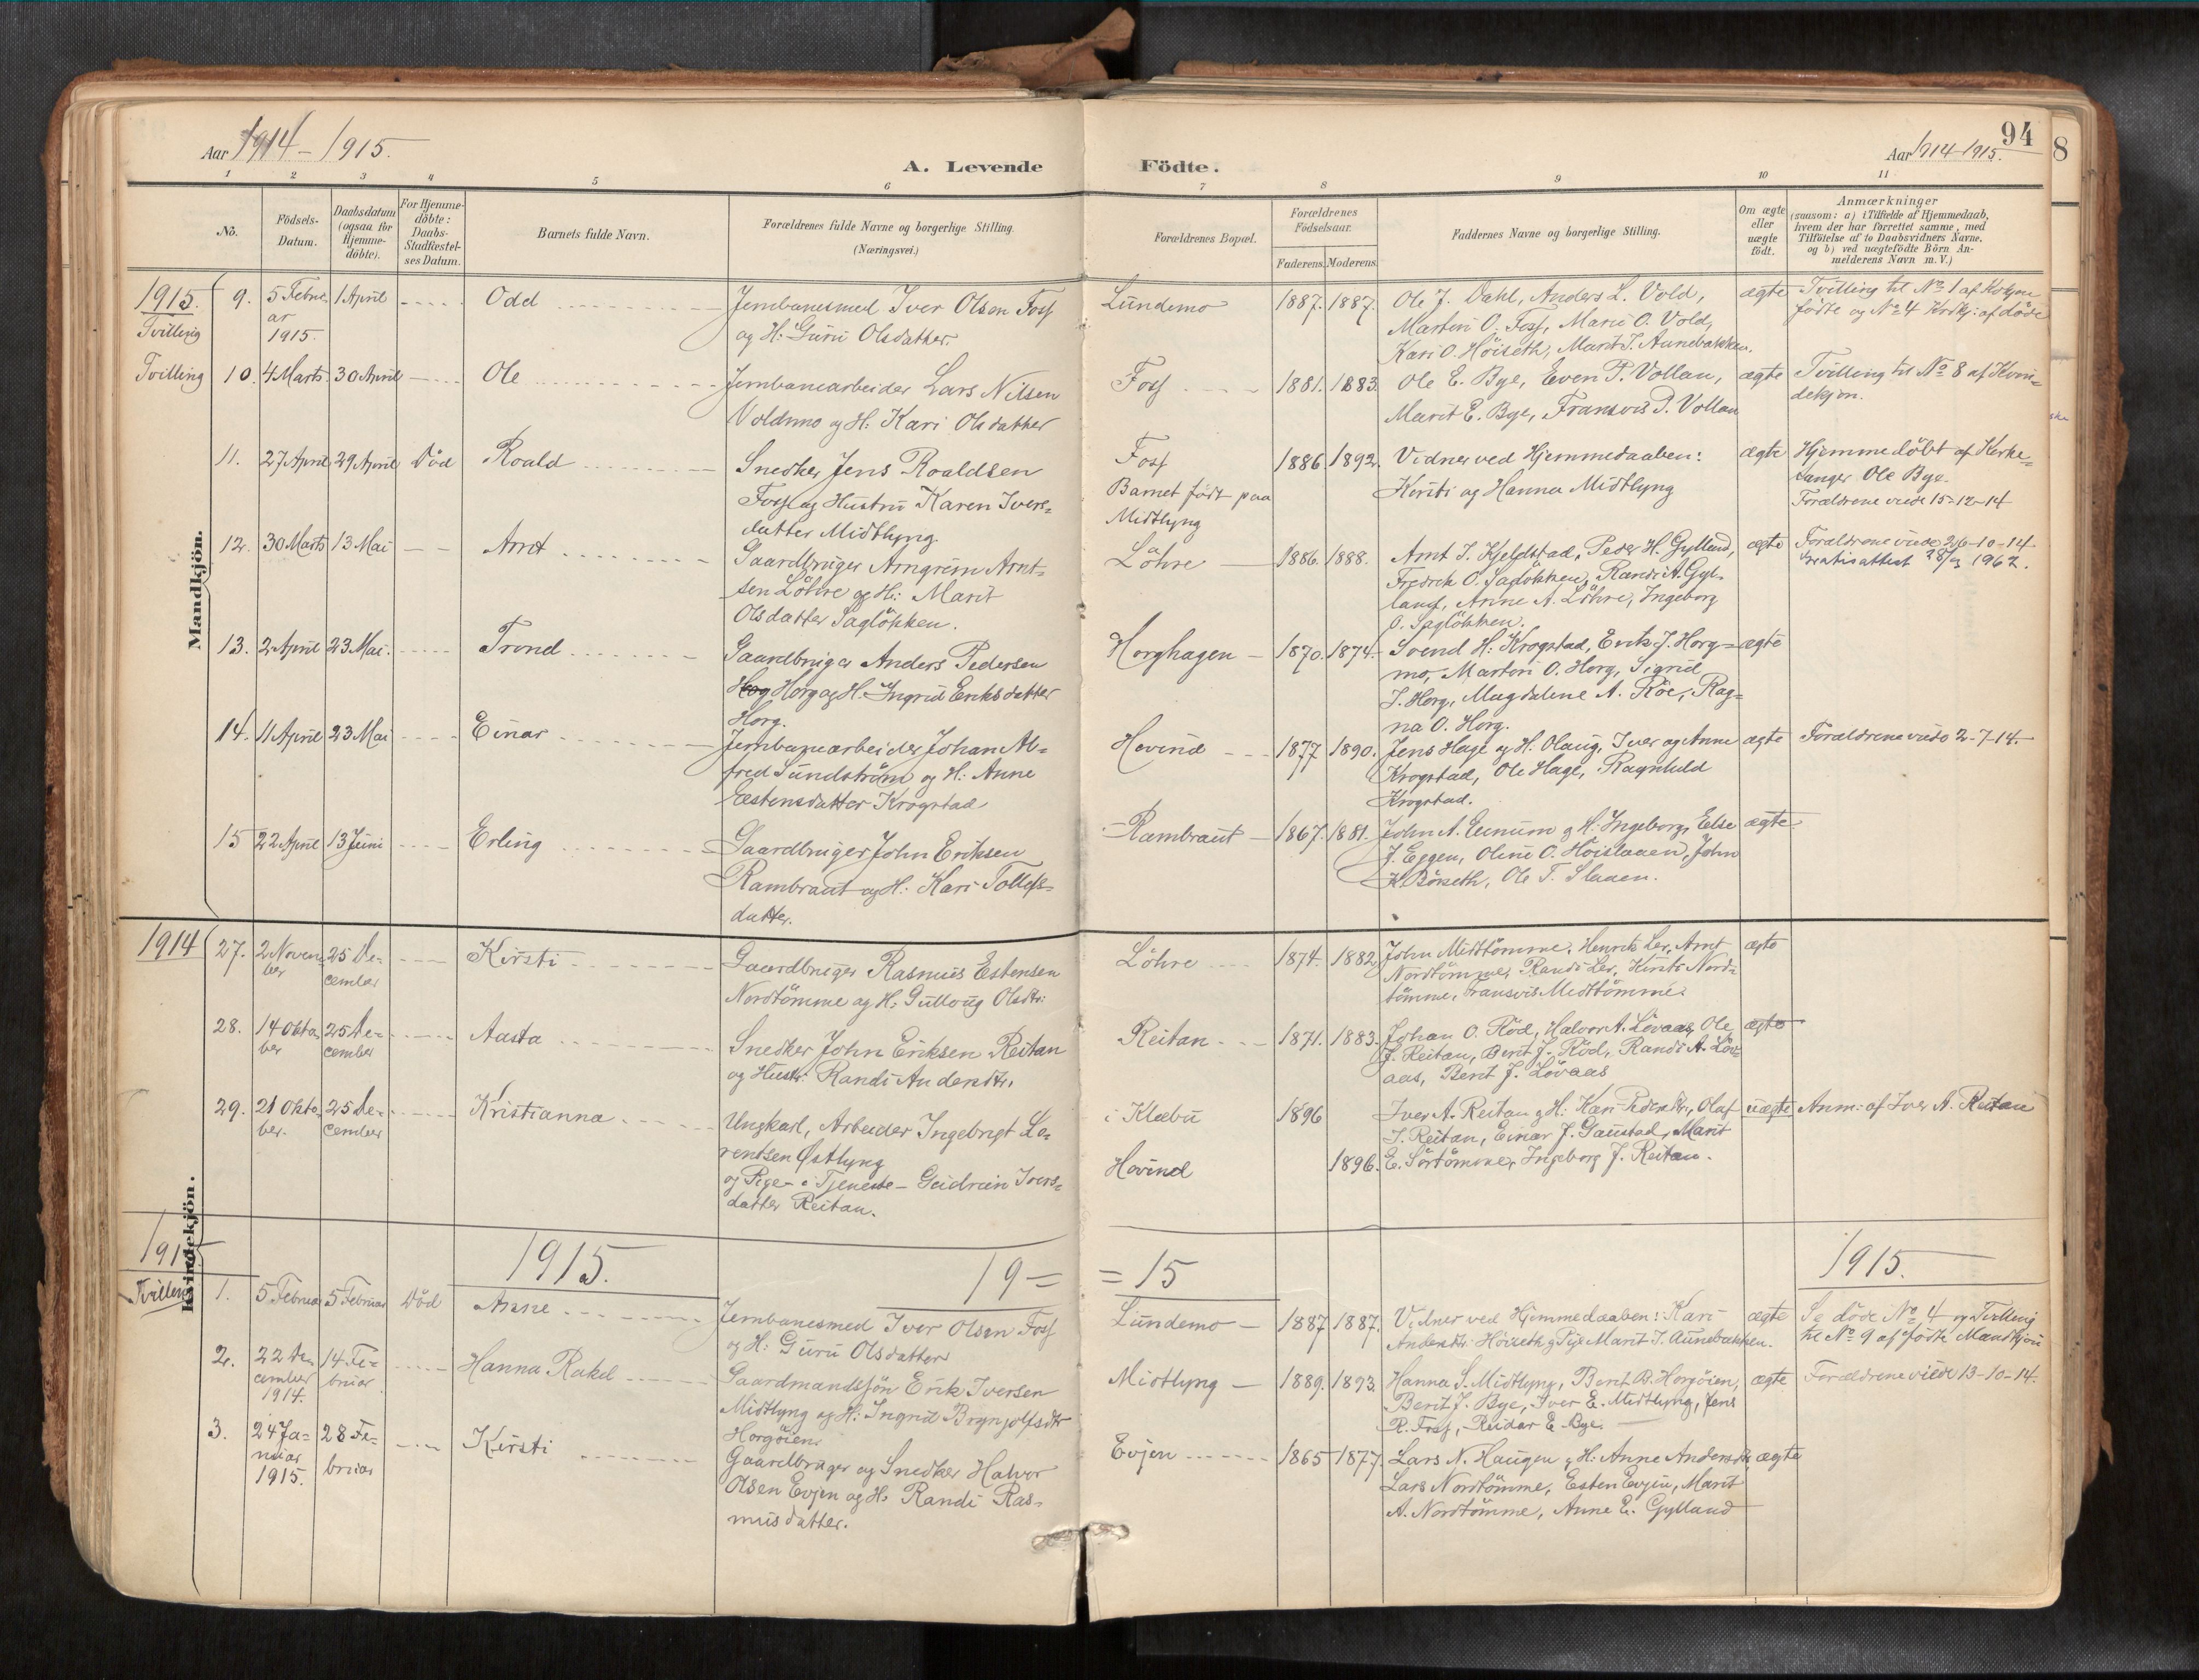 94
8
Aar 1914-1915.
Aar 1914-1915.
A. Levende Födte.
1 2 3 4 5 6 7 8 9 10 11
No.
Födsels-
Datum.
Daabsdatum
(ogsaa for
Hjemme-
döbte).
For Hjemme-
döbte:
Daabs-
Stadfæstel-
ses Datum.
Barnets fulde Navn.
Forældrenes fulde Navne og borgerlige Stilling.
(Næringsvei.)
Forældrenes Bopæl.
Forældrenes
Födselsaar.
Faderens. Moderens.
Faddernes Navne og borgerlige Stilling.
Om ægte
eller
uægte
födt.
Anmærkninger
(saasom: a) i Tilfælde af Hjemmedaab,
hvem der har forrettet samme, med
Tilföielse af to Daabsvidners Navne,
og b) ved uægtefödte Börn An-
melderens Navn m. V.)
Mandkjön.
1915.
Tvilling
9. 5 Febru-
ar
1915.
1 April
Odd
Jernbanesmed Iver Olsen Foss
og H: Guru Olsdatter.
Lundemo
1887. 1887.
Ole J. Dahl, Anders L. Vold,
Martin O. Foss, Marie O. Vold,
Kari O. Höiseth, Marit J. Aunebakken.
ægte
Tvilling til No 1 af Kvkjøn
födte og No 4 Kvdkj: af döde
Tvilling
10. 4 Marts 30 April
Ole
Jernbanearbeider Lars Nilsen
Voldmo og H: Kari Olsdatter
Foss
1881. 1883.
Ole E. Bye, Even P. Vollan,
Marit E. Bye, Fransvis P. Vollan
ægte
Tvilling til No 8 af Kvin-
dekjön.
11. 27 April 29 April Död
Roald
Snedker Jens Roaldsen
Foss og Hustru Karen Ivers-
datter Midtlyng.
Foss
Barnet födt paa
Midtlyng
1886. 1892.
Vidner ved Hjemmedaaben:
Kirsti og Hanna Midtlyng
ægte
Hjemmedöbt af Kirke-
sanger Ole Bye.
Forældrene viede 15-12-14
12. 30 Marts 13 Mai
Arnt
Gaardbruger Arngrim Arnt-
sen Löhre og H: Marit
Olsdatter Saglökken.
Löhre
1886. 1888.
Arnt J. Kjeldstad, Peder H. Gylland,
Fredrik O. Saglökken, Randi A. Gyl-
land, Anne A. Löhre, Ingeborg
O. Saglökken.
ægte
Forældrene viede 26-10-14
1962.
13. 2 April 23 Mai.
Trond
Gaardbruger Anders Pedersen
Horg og H. Ingrid Eriksdatter
Horg.
Horghagen
1870. 1874.
Svend H. Krogstad, Erik J. Horg-
mo, Martin O. Horg, Sigrid
J. Horg, Magdalene A. Röe, Rag-
na O. Horg.
ægte
14. 11 April 23 Mai
Einar
Jernbanearbeider Johan Al-
fred Sundström og H: Anne
Estensdatter Krogstad
Hovind
1877 1890.
Jens Hage og H. Olaug, Iver og Anne
Krogstad, Ole Hage, Ragnhild
Krogstad.
ægte
Forældrene viede 2-7-14.
15 22 April 13 Juni
Erling
Gaardbruger John Eriksen
Rambraut og H. Kari Tollefs-
datter.
Rambraut
1867. 1881.
John A. Eenum og H. Ingeborg, Else
J. Eggen, Oline O. Höislaaen, John
K. Börseth, Ole T. Slaaen.
ægte
Kvindekjön.
1914
27. 2 Novem-
ber
25 De-
cember
Kirsti
Gaardbruger Rasmus Estensen
Nordtömme og H: Gullaug Olsdtr:
Löhre
1874. 1882.
John Midttömme, Henrik Ler, Arnt
Nordtömme, Randi Ler, Kirsti Nord-
tömme, Fransvis Midttömme.
ægte
28. 14 Okto-
ber
25 De-
cember
Aasta
Snedker John Eriksen Reitan
og Hustr: Randi Andersdtr.
Reitan
1871. 1883.
Johan O. Röd, Halvor A. Lövaas, Ole
J. Reitan, Berit J. Röd, Randi A. Löv-
aas, Berit J. Lövaas
ægte
29. 21 Okto-
ber.
25 De-
cember
Kristianna
Ungkarl, Arbeider Ingebrigt Lo-
rentsen Østlyng
og Pige i Tjeneste Gudrun Ivers-
datter Reitan.
i Klæbu
Hovind
1896
1896.
Iver A. Reitan og H: Kari Pedersdtr., Olaf
I. Reitan, Einar J. Gaustad, Marit
E. Sörtömme, Ingeborg J. Reitan.
uægte
Anm: af Iver A. Reitan
1915
1915. 19= =15 1915.
Tvilling
1. 5 Februar 5 Februar Död
Anne
Jernbanesmed Iver Olsen Foss
og H: Guru Olsdatter
Lundemo
1887 1887.
Vidner ved Hjemmedaaben: Kari
Andersdtr Höiseth og Pige Marit J. Aunebakken.
ægte
Se döde No 4 og Tvilling
til No 9 af födte Mandkjön
2. 22 De-
cember
1914.
14 Fe-
bruar
Hanna Rakel
Gaardmandssön Erik Iversen
Midtlyng og H: Ingrid Brynjolfsdtr
Horgöien.
Midtlyng
1889. 1893.
Hanna S. Midtlyng, Berit B. Horgöien,
Berit J. Bye, Iver E. Midtlyng, Jens
R. Foss, Reidar E. Bye.
ægte
Forældrene viede 13-10-14.
3. 24 Ja-
nuar
1915.
28 Fe-
bruar
Kirsti
Gaardbruger og Snedker Halvor
Olsen Evjen og H: Randi Ras-
musdatter.
Evjen
1865 1877
Lars N. Haugen og H: Anne Andersdtr,
Lars Nordtömme, Esten Evjen, Marit
A. Nordtömme, Anne E. Gylland
ægte